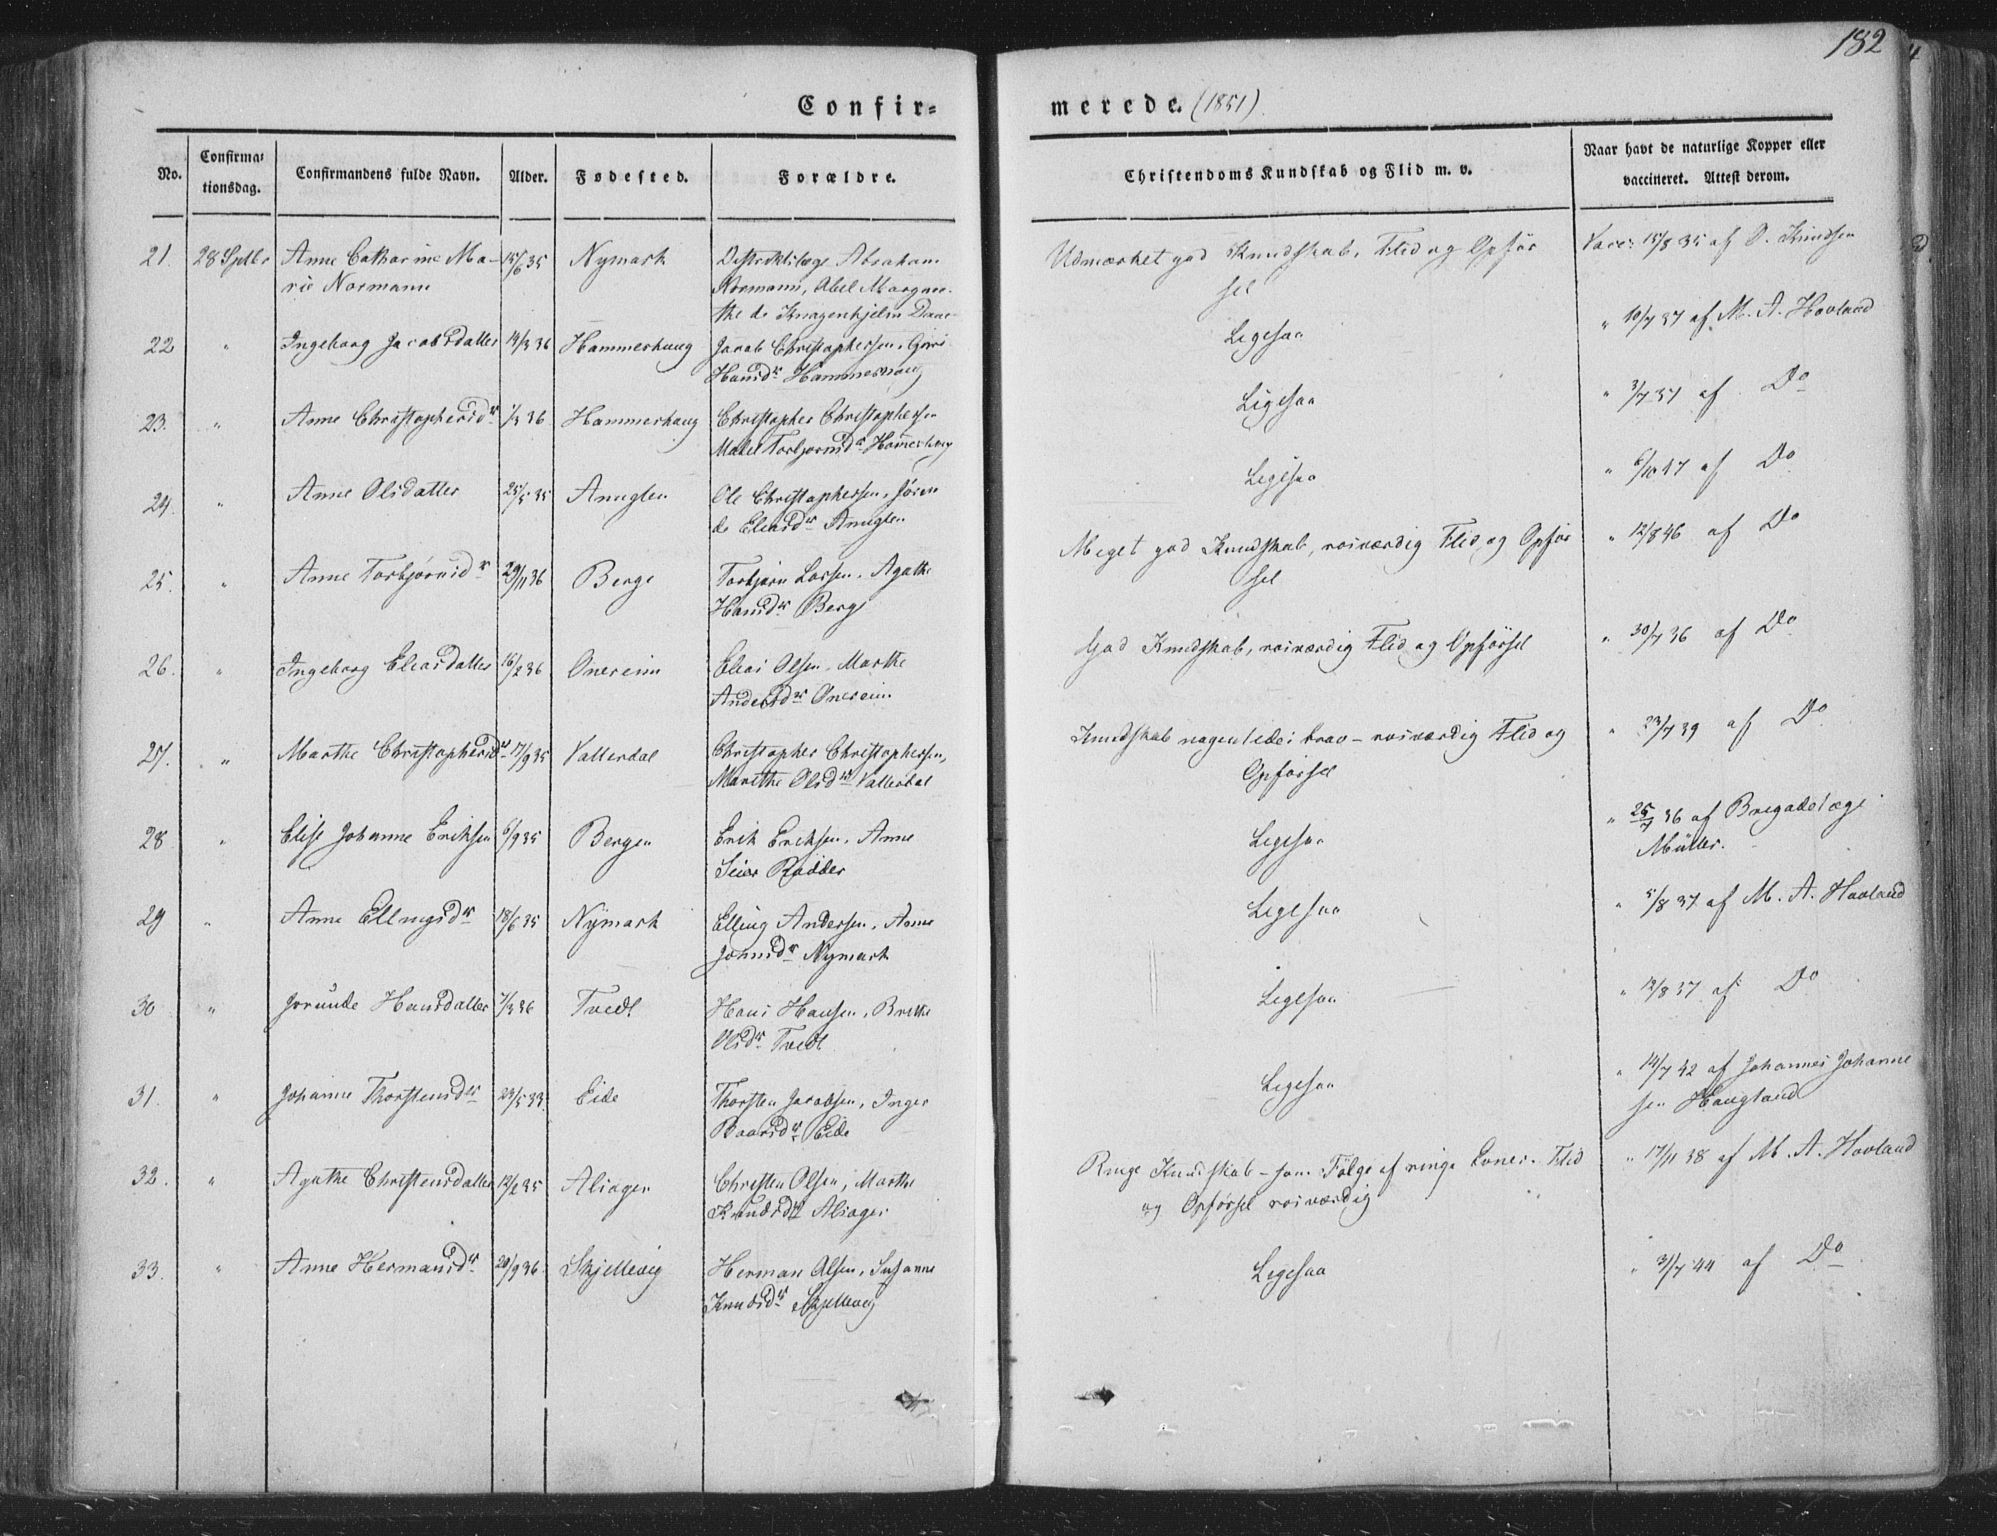 182
Confir=
merede. (1851)
No.
Confirma=
tionsdag.
Confirmandens fulde Navn.
Alder.
Fødested.
Forældre.
Christendoms Kundskab og Flid m. v.
Naar havt de naturlige Kopper eller
vaccineret. Attest derom.
21. 28 Septbr Anne Catharine Ma- 15/6 35 Nymark Distriktslæge Abraham
rie Normann Normann, Abel Margre-
the de Knagenhjelm Daae
Udmærket god Kundskab, Flid og Opfør
sel
Vacc: 15/8 35 af O. Knudsen
22 " Ingeborg Jacobsdatter 14/3 36 Hammerhaug Jacob Christophersen, Guri
Hansdr Hammerhaug
Ligesaa
" 10/7 37 af M. A. Hovland
23. " Anne Christophersdr 1/3 36 Hammerhaug Christopher Christophersen
Malet Torbjørnsdr Ham̄erhaug
Ligesaa
" 3/7 37 af Do
24. " Anne Olsdatter 25/5 35 Anuglen Ole Christophersen,
Eliasdr Anuglen
Ligesaa
" 6/10 47 af Do
25. " Anne Torbjørnsdr 29/11 36 Berge Torbjørn Larsen, Agathe
Hansdr Berge
Meget god Kundskab, rosværdig Flid og Opfør
sel
" 12/8 46 af Do
26. " Ingeborg Eliasdatter 16/2 36 Onereim Elias Olsen, Marthe
Andersdr Onereim
God Kundskab, rosværdig Flid og Opførsel
" 30/7 36 af Do
27. " Marthe Christophersdr 17/9 35 Vallerdal Christopher Christophersen,
Marithe Olsdr Vallerdal
Kundskab nogenledes brav - rosværdig Flid og
Opførsel
" 23/7 39 af Do
28 " Elise Johanne Eriksen 6/9 35 Bergen Erik Eriksen, Anne
Seier Rødder
Ligesaa
" 25/7 36 af Brigadelæge
Müller.
29 " Anne Ellingsdr 18/6 35 Nymark Elling Andersen, Anne
Johnsdr Nymark
Ligesaa
" 5/8 37 af M. A. Hovland
30 " Jorunde Hansdatter 7/3 36 Tvedt Hans Hansen, Brithe
Olsdr Tvedt
Ligesaa
" 12/8 37 af Do
31. " Johanne Thorstensdr 23/5 33. Eide Thorsten Jacobsen, Inger
Baarsdr Eide
Ligesaa
" 14/7 42 af Johannes Johanne
sen Haugland
32. " Agathe Christensdatter 12/2 35 Aliager Christen Olsen, Marthe
Knudsdr Aliager
Ringe Kundskab - som Følge af ringe Evner. Flid
og Opførsel rosværdig
" 17/11 38 af M. A. Hovland
33. " Anne Hermansdr 20/9 36. Skjellevig Herman Olsen, Susanne
Knudsdr Skjellevig
Ligesaa
" 31/7 44 af Do